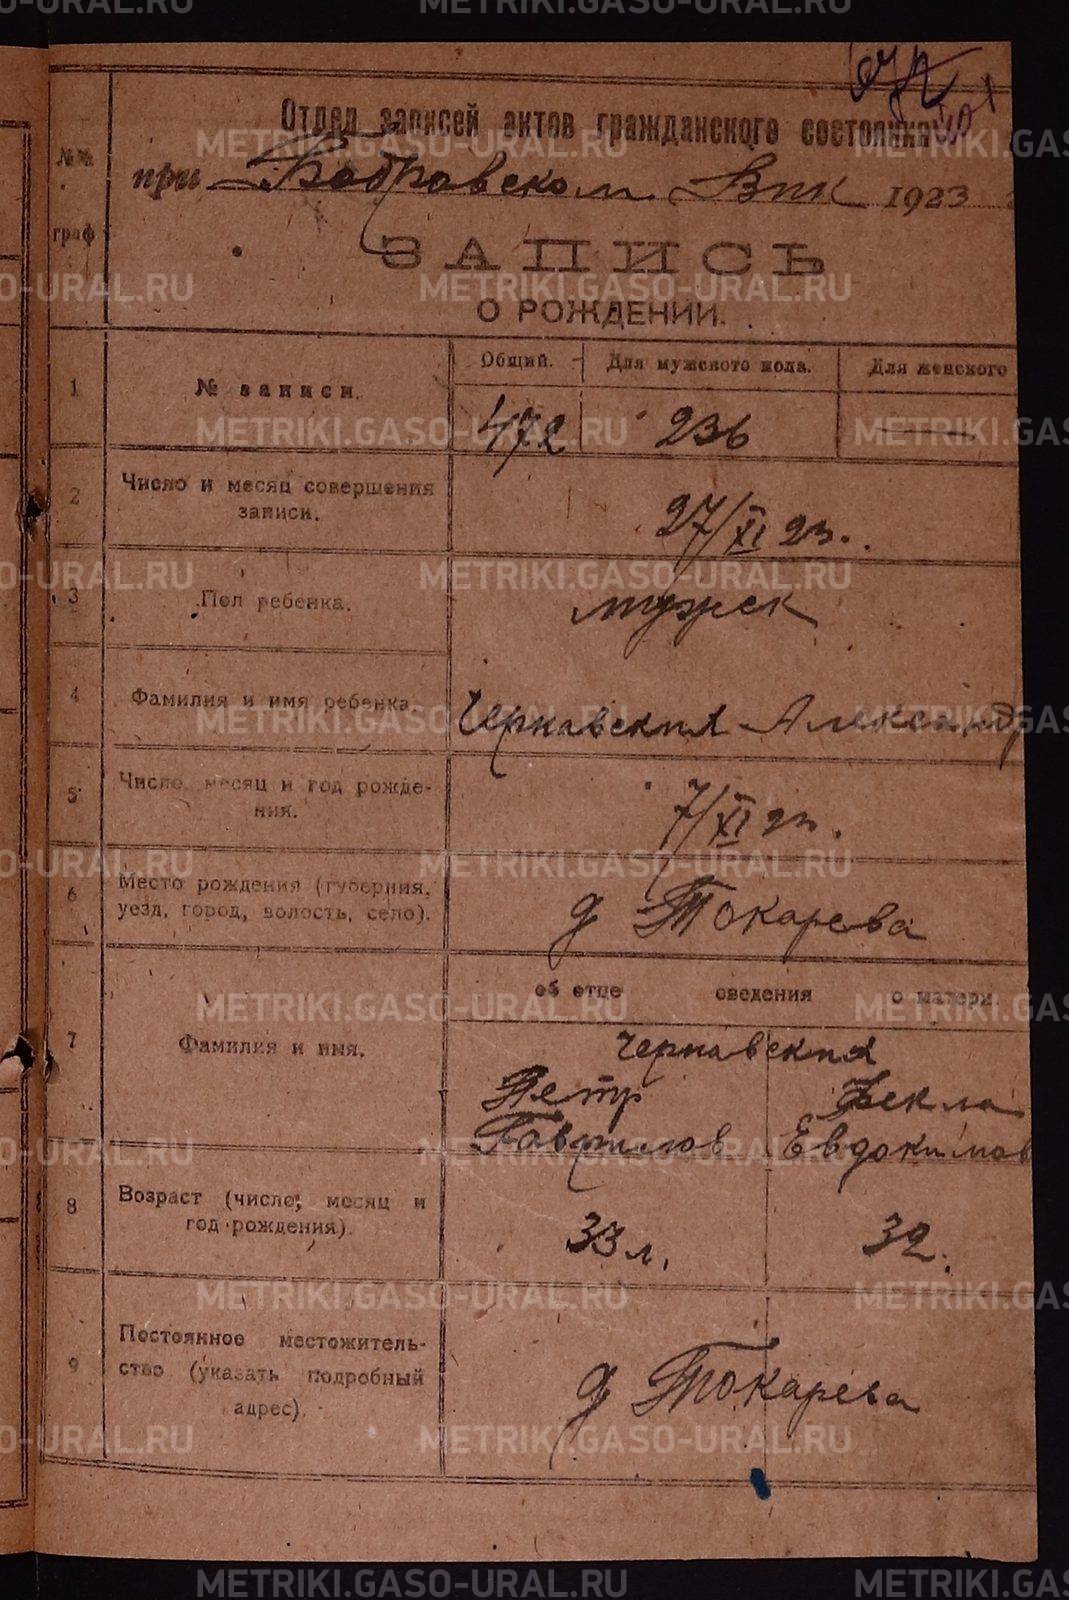 Отдел записей актов гражданского состояния
при Бобровском Вик 1923
№№ граф
ЗАПИСЬ
О РОЖДЕНИИ.
Общий. Для мужского пола. Для женского
1 № записи. 472 236 —
2 Число и месяц совершения
записи. 27/XI 23.
3 Пол ребенка. мужск
4 Фамилия и имя ребенка. Чернавский Александр
5 Число, месяц и год рожде-
ния. 7/XI 23.
6 Место рождения (губерния,
уезд, город, волость, село). д Токарева
об отце сведения о матери
7 Фамилия и имя. Чернавский
Петр Фекла
Гаврилов Евдокимов
8 Возраст (число, месяц и
год рождения). 33 л. 32.
9 Постоянное местожитель-
ство (указать подробный
адрес). д Токарева
METRIKI.GASO-URAL.RU